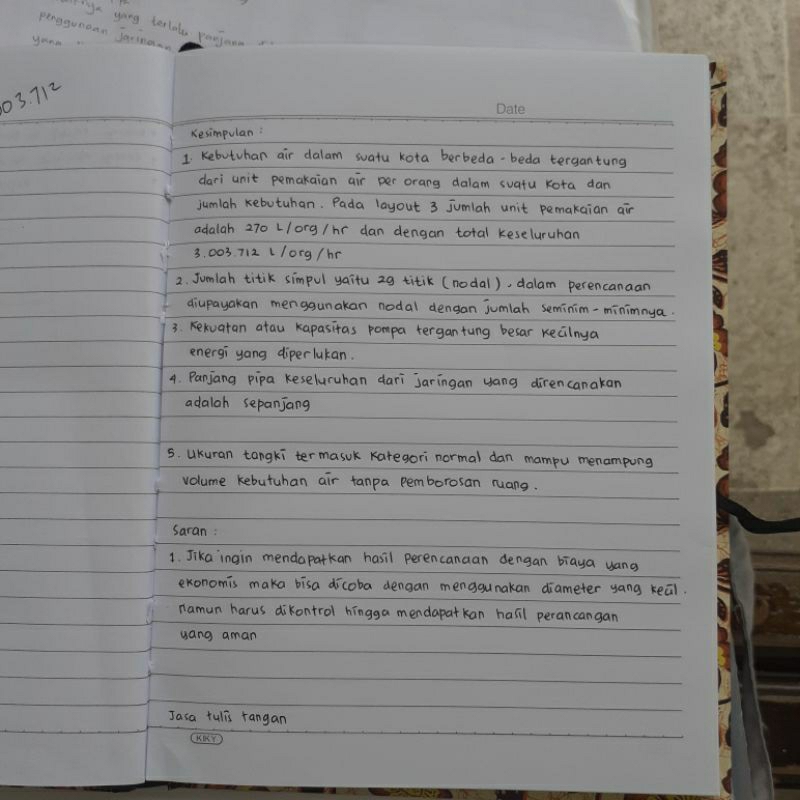 yang terlalu panjang
penggunaan jaringan
yang
03.712
Date
Kesimpulan :
1. Kebutuhan air dalam suatu kota berbeda - beda tergantung
dari unit pemakaian air per orang dalam suatu kota dan
jumlah kebutuhan. Pada layout 3 jumlah unit pemakaian air
adalah 270 L/org/hr dan dengan total keseluruhan
3.003.712 L/org/hr
2. Jumlah titik simpul yaitu 29 titik (nodal), dalam perencanaan
diupayakan menggunakan nodal dengan jumlah seminim - minimnya.
3. Kekuatan atau kapasitas pompa tergantung besar kecilnya
energi yang diperlukan.
4. Panjang pipa keseluruhan dari jaringan yang direncanakan
adalah sepanjang
5. Ukuran tangki termasuk kategori normal dan mampu menampung
volume kebutuhan air tanpa pemborosan ruang.
Saran :
1. Jika ingin mendapatkan hasil perencanaan dengan biaya yang
ekonomis maka bisa dicoba dengan menggunakan diameter yang kecil.
namun harus dikontrol hingga mendapatkan hasil perancangan
yang aman
Jasa tulis tangan
KIKY